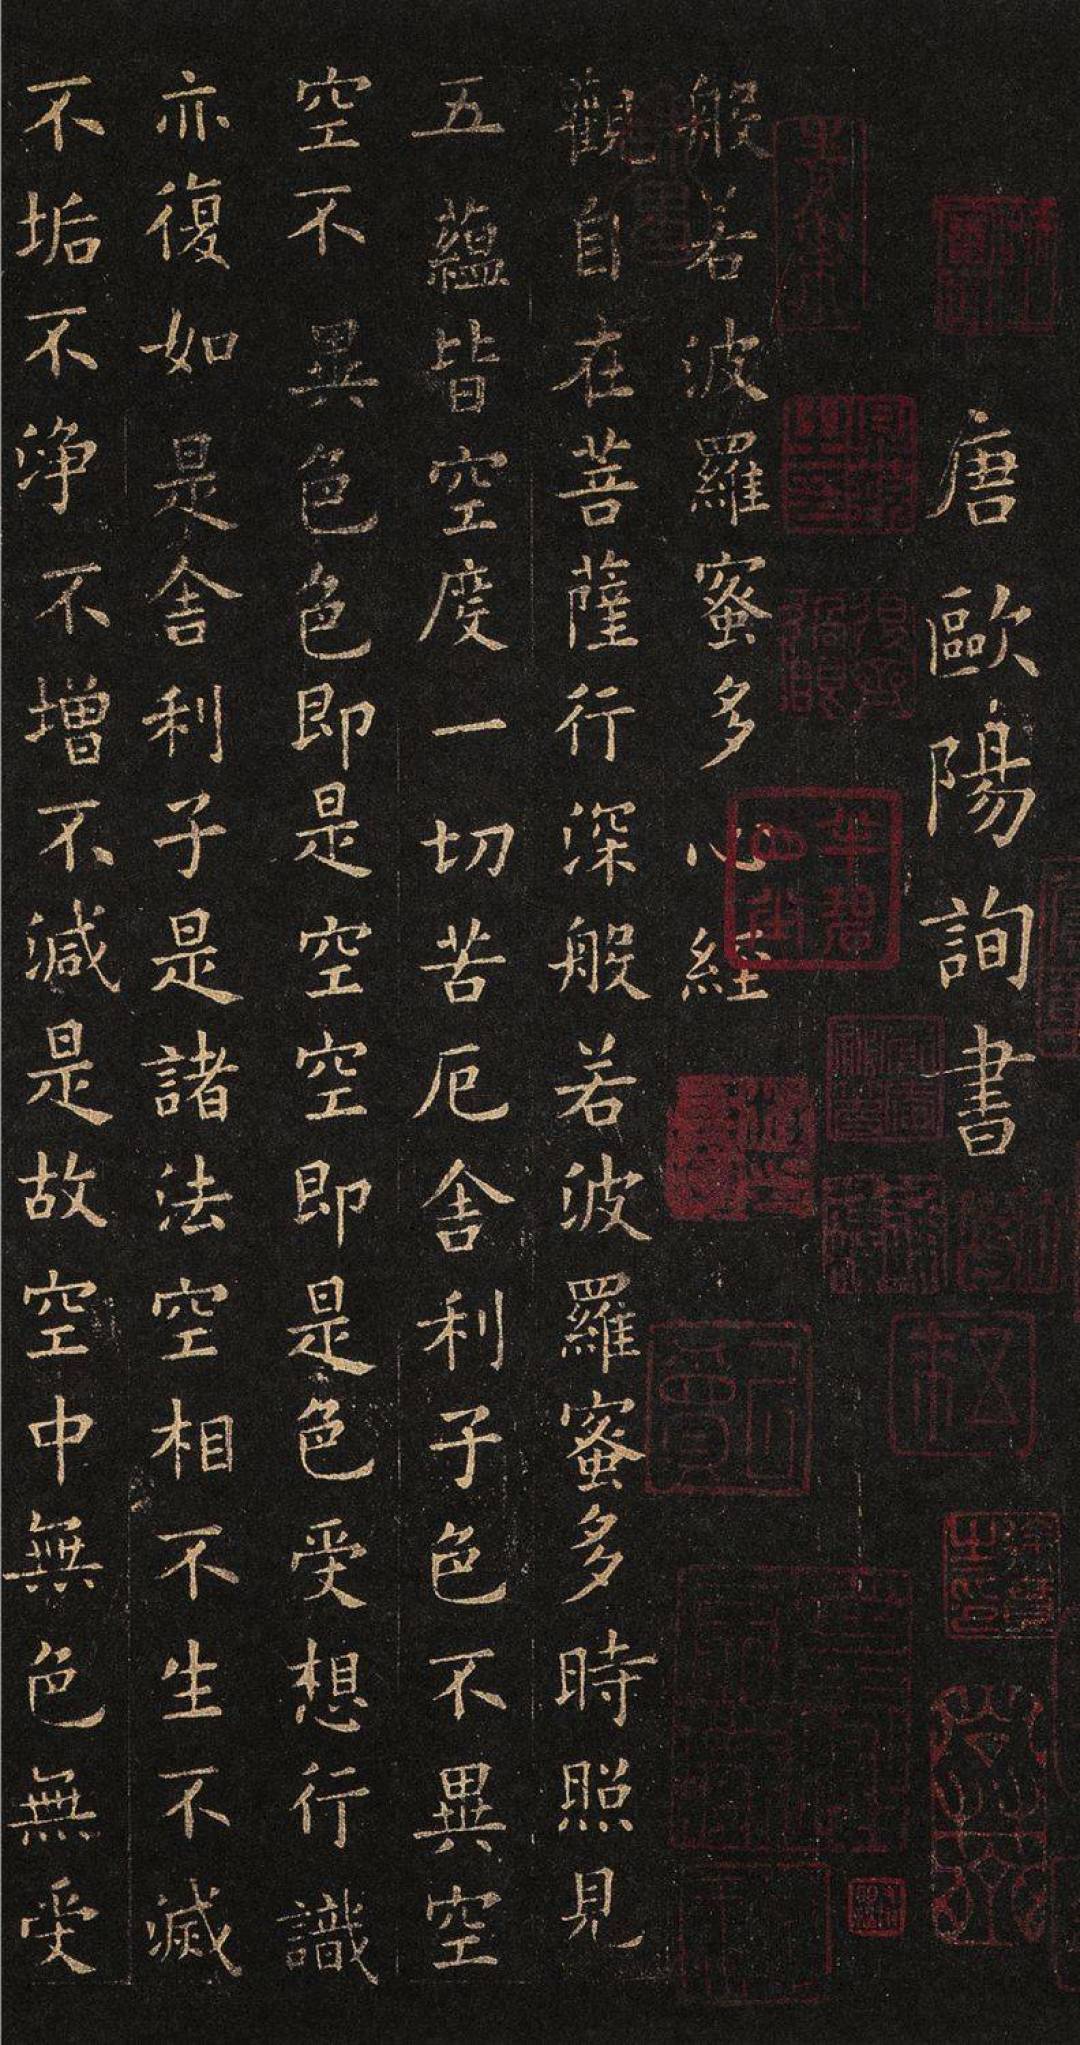 唐歐陽詢書
般若波羅蜜多心経
觀自在菩薩行深般若波羅蜜多時照見
五蘊皆空度一切苦厄舍利子色不異空
空不異色色即是空空即是色受想行識
亦復如是舍利子是諸法空相不生不滅
不垢不浄不增不減是故空中無色無受